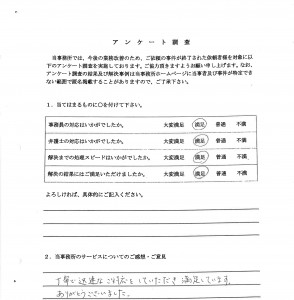 アンケート調査
当事務所では、今後の業務改善のため、ご依頼の事件が終了された依頼者様を対象に以
下のアンケート調査を実施しております。ご協力頂きますようお願い申し上げます。なお、
アンケート調査の結果及び解決事例は当事務所ホームページに当事者及び事件が特定でき
ない範囲で匿名掲載することがありますので、ご了承下さい。
1．当てはまるものに○を付けて下さい。
事務員の対応はいかがでしたか。 大変満足 満足 普通 不満
弁護士の対応はいかがでしたか。 大変満足 満足 普通 不満
解決までの処理スピードはいかがでしたか。 大変満足 満足 普通 不満
解決の結果にはご満足いただけましたか。 大変満足 満足 普通 不満
よろしければ、具体的にご記入ください。
2．当事務所のサービスについてのご感想・ご意見
丁寧で迅速なご対応をしていただき満足しています。
ありがとうございました。